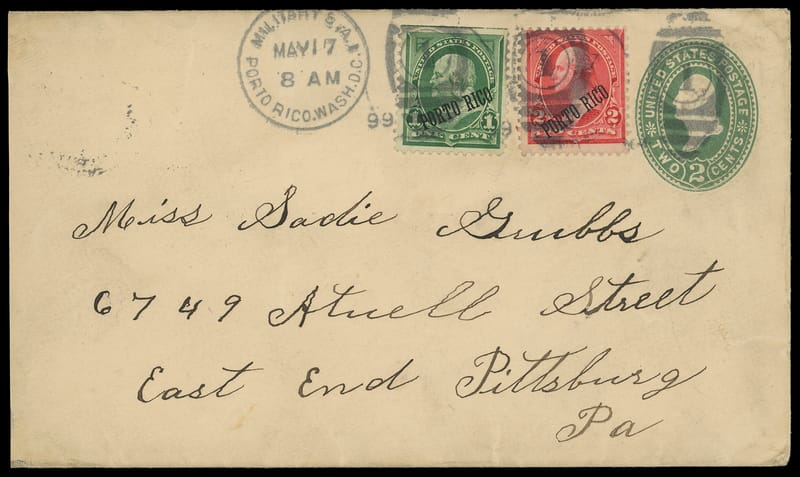 MILITARY STA. 1
MAY 17
8 AM
PORTO RICO. WASH. D.C.
99
UNITED STATES POSTAGE
PORTO RICO
1 1
ONE CENT
PORTO RICO
2 2
CENTS
UNITED STATES POSTAGE
TWO 2 CENTS
Miss Sadie Grubbs
6749 Atwell Street
East End Pittsburg
Pa